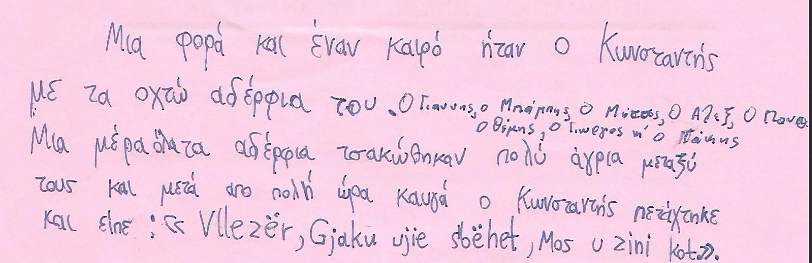 Μια φορά και έναν καιρό ήταν ο Κωνσταντής
με τα οχτώ αδέρφια του. Ο Γιαννης, ο Μπάμπης, Ο Μήτσος, Ο Αλεξ, Ο Παναο
Ο Θέμης, Ο Γιωργος κ' ο Πάκης
Μια μέρα όλα τα αδέρφια τσακώθηκαν πολύ άγρια μεταξύ
τους και μετά απο πολή ώρα καυγά ο Κωνσταντής πετάχτηκε
και είπε: «Vllezër, Gjaku ujie sbëhet, Mos u zini kot».